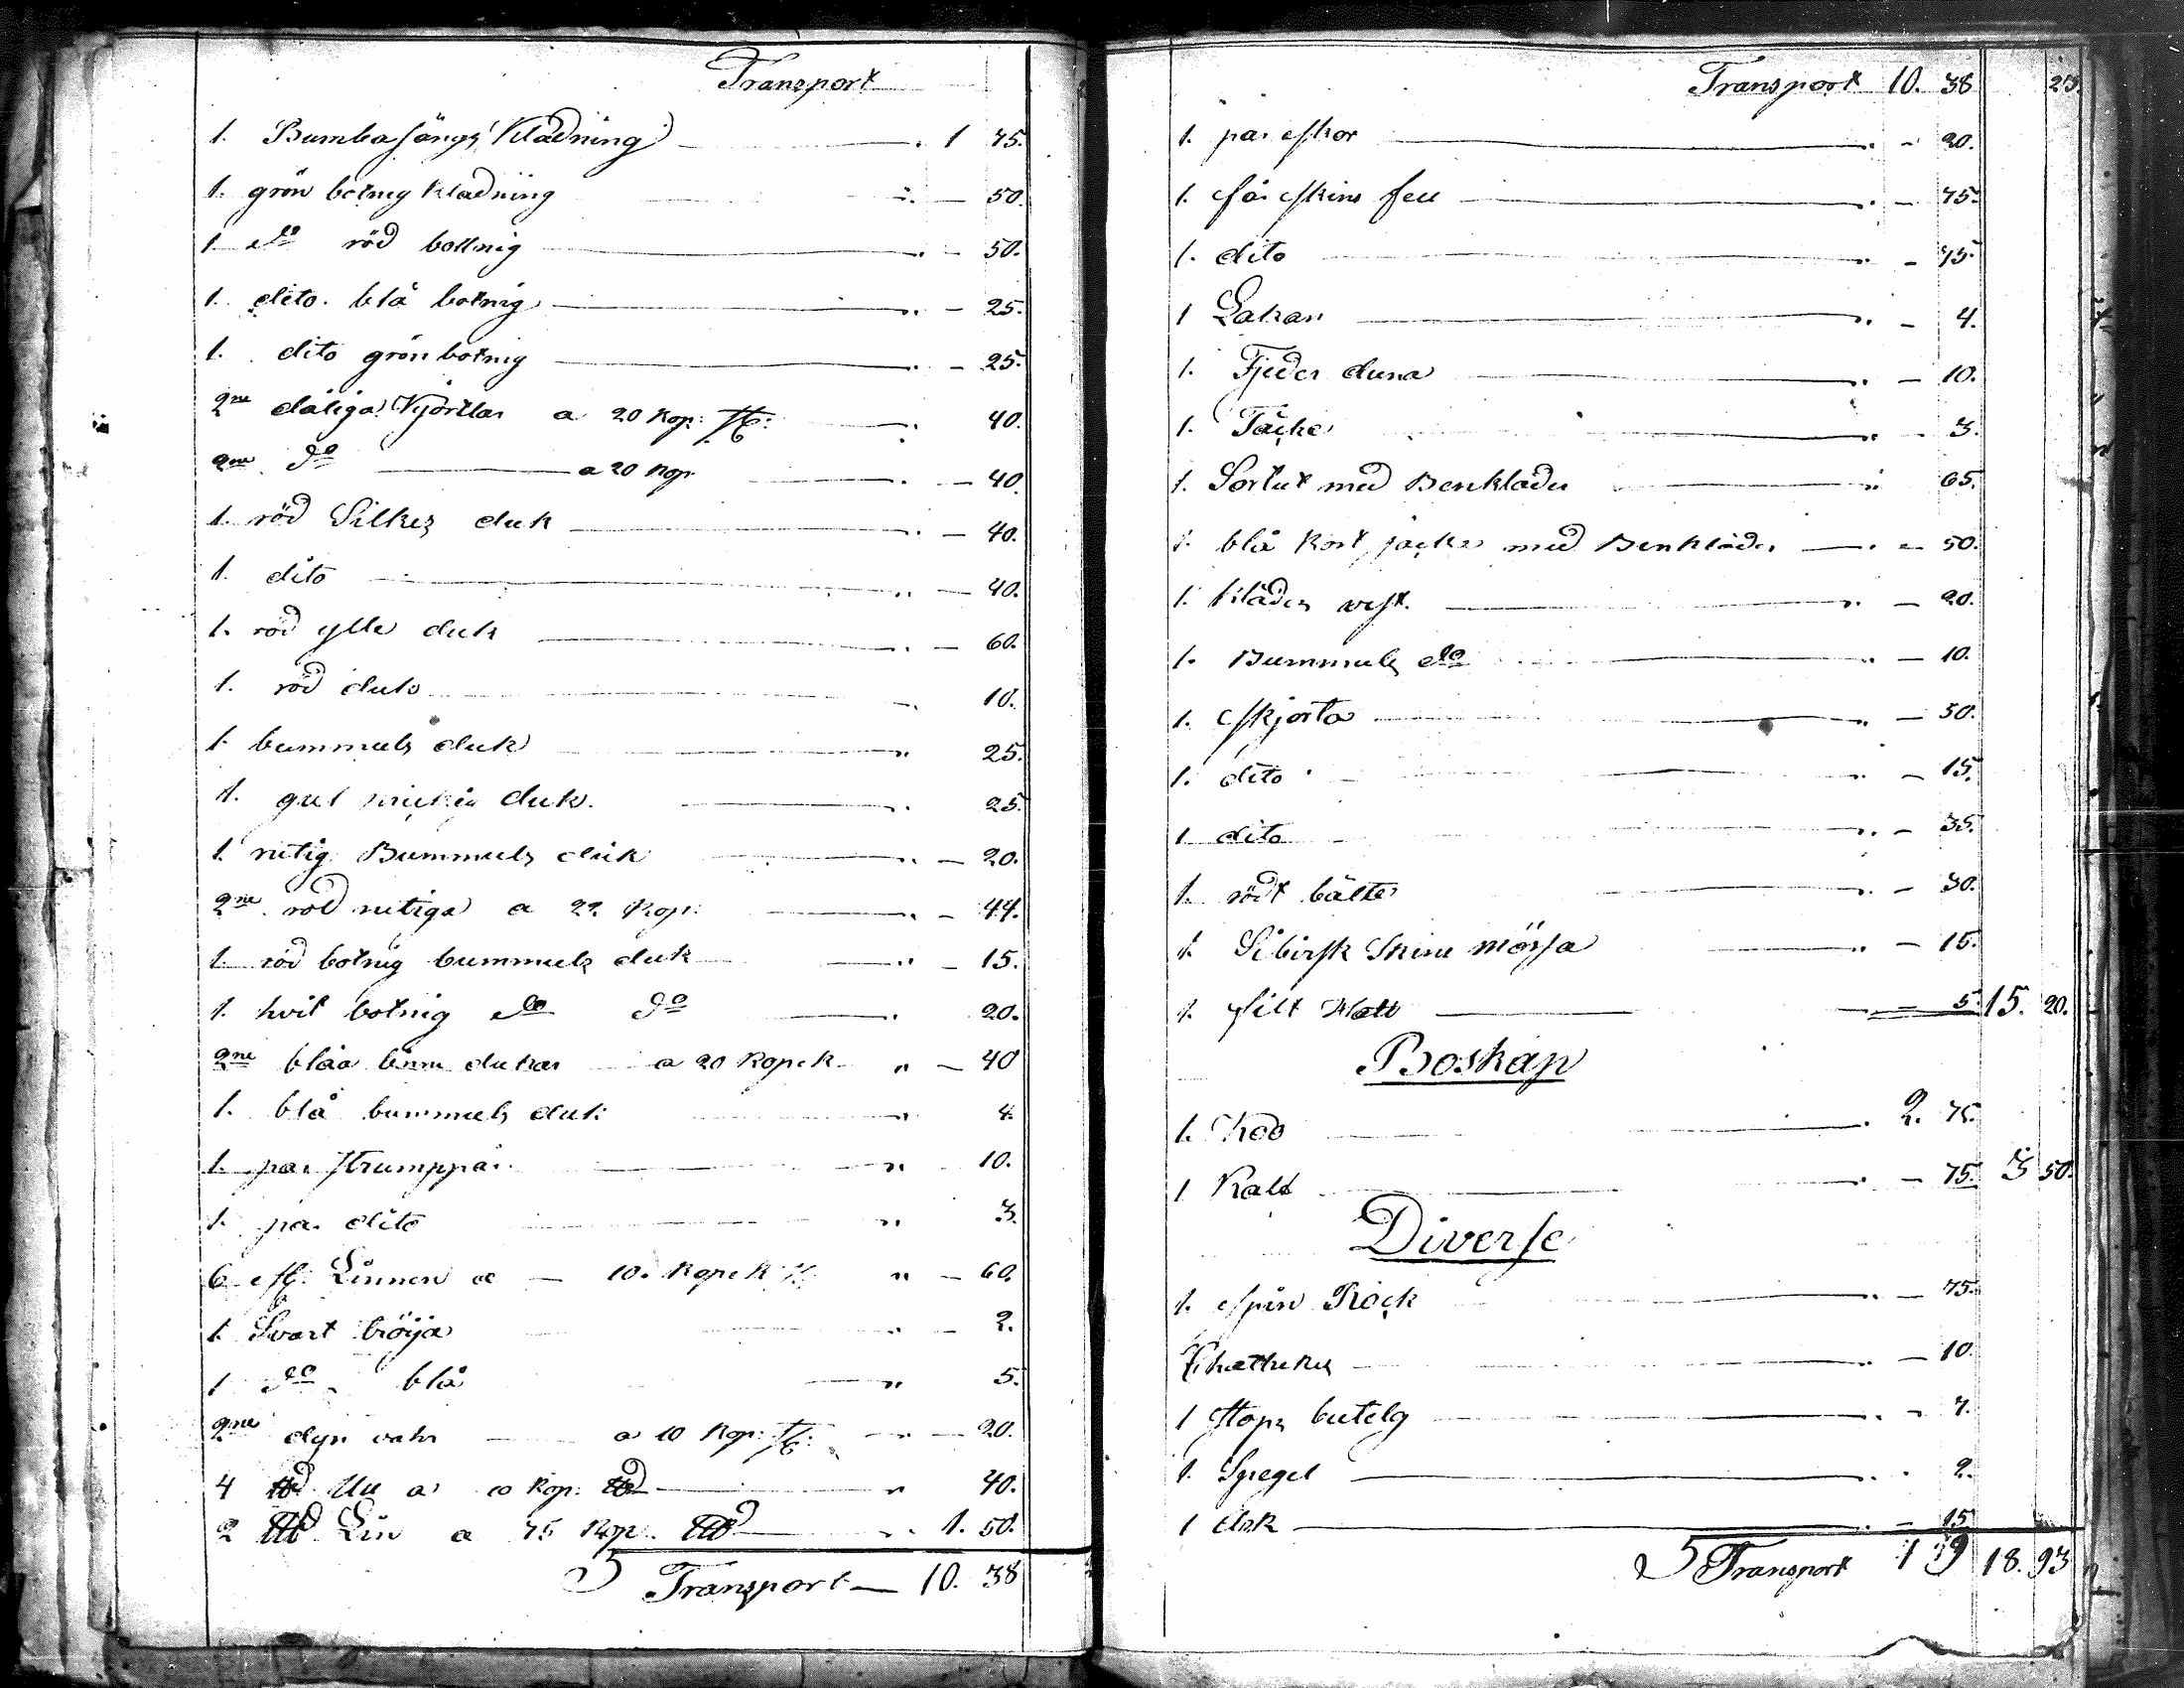 Transport
1. Bumbasängs Klädning . 1 75.
1. grön botnig Klädning . — 50.
1 do röd bottnig . — 50.
1. dito. blå botnig " — 25.
1. dito grön botnig . — 25.
2ne dåliga Kjortlar a 20 Kop: st: . 40.
2ne do a 20 Kop . — 40.
1. röd Silkes duk . — 40.
1. dito " — 40.
1. röd ylle duk . — 60.
1. röd duk . 10.
1. bummuls duk " 25.
1. gul duk. . 25.
1. rutig Bummuls duk " — 20.
2ne röd rutiga a 22 Kop: . — 44.
1 röd botnig bummuls duk " — 15.
1. hvit botnig do do . 20.
2ne blåa dukar a 20 Kopek " — 40
1. blå bummuls duk " 4.
1. par strumppar " 10.
1. par dito " 3.
6 st. Linnen a — 10. Kopek st " — 60.
1. Svart tröija " — 2.
1 do blå " 5.
2ne dyn vahr a 10 Kop: st: " — 20.
4 tt Ull a 10 Kop: tt " 40.
2 ttt Lin a 75 Kop. ttt " 1. 50.
Transport — 10. 38
Transport 10. 38 25.
1. par skor . - 20.
1. fårskins fell . - 75.
1. dito " - 75.
1 Lakan " - 4.
1. Fjeder duna " — 10.
1. Täcke " - 3.
1. Sortut med Benkläder " 65.
1. blå Kort jacka med Benkläder . - 50.
1. Klädes vest. " — 20.
1. Bummuls do " — 10.
1. skjorta " — 50.
1. dito " — 15.
1 dito " - 35.
1. rödt bälte " - 30.
1. Sibirsk Skinn mössa " — 15.
1. filt Hatt = 5. 15. 20.
Boskap
1. Koo . 2. 75.
1 Kalf . — 75. 3 50.
Diverse
1. spin Rock " — 75.
" — 10.
1 stops butelg " - 7.
1. Spegel " . 2.
1 Ask . - 15
Transport 1 9 18. 93